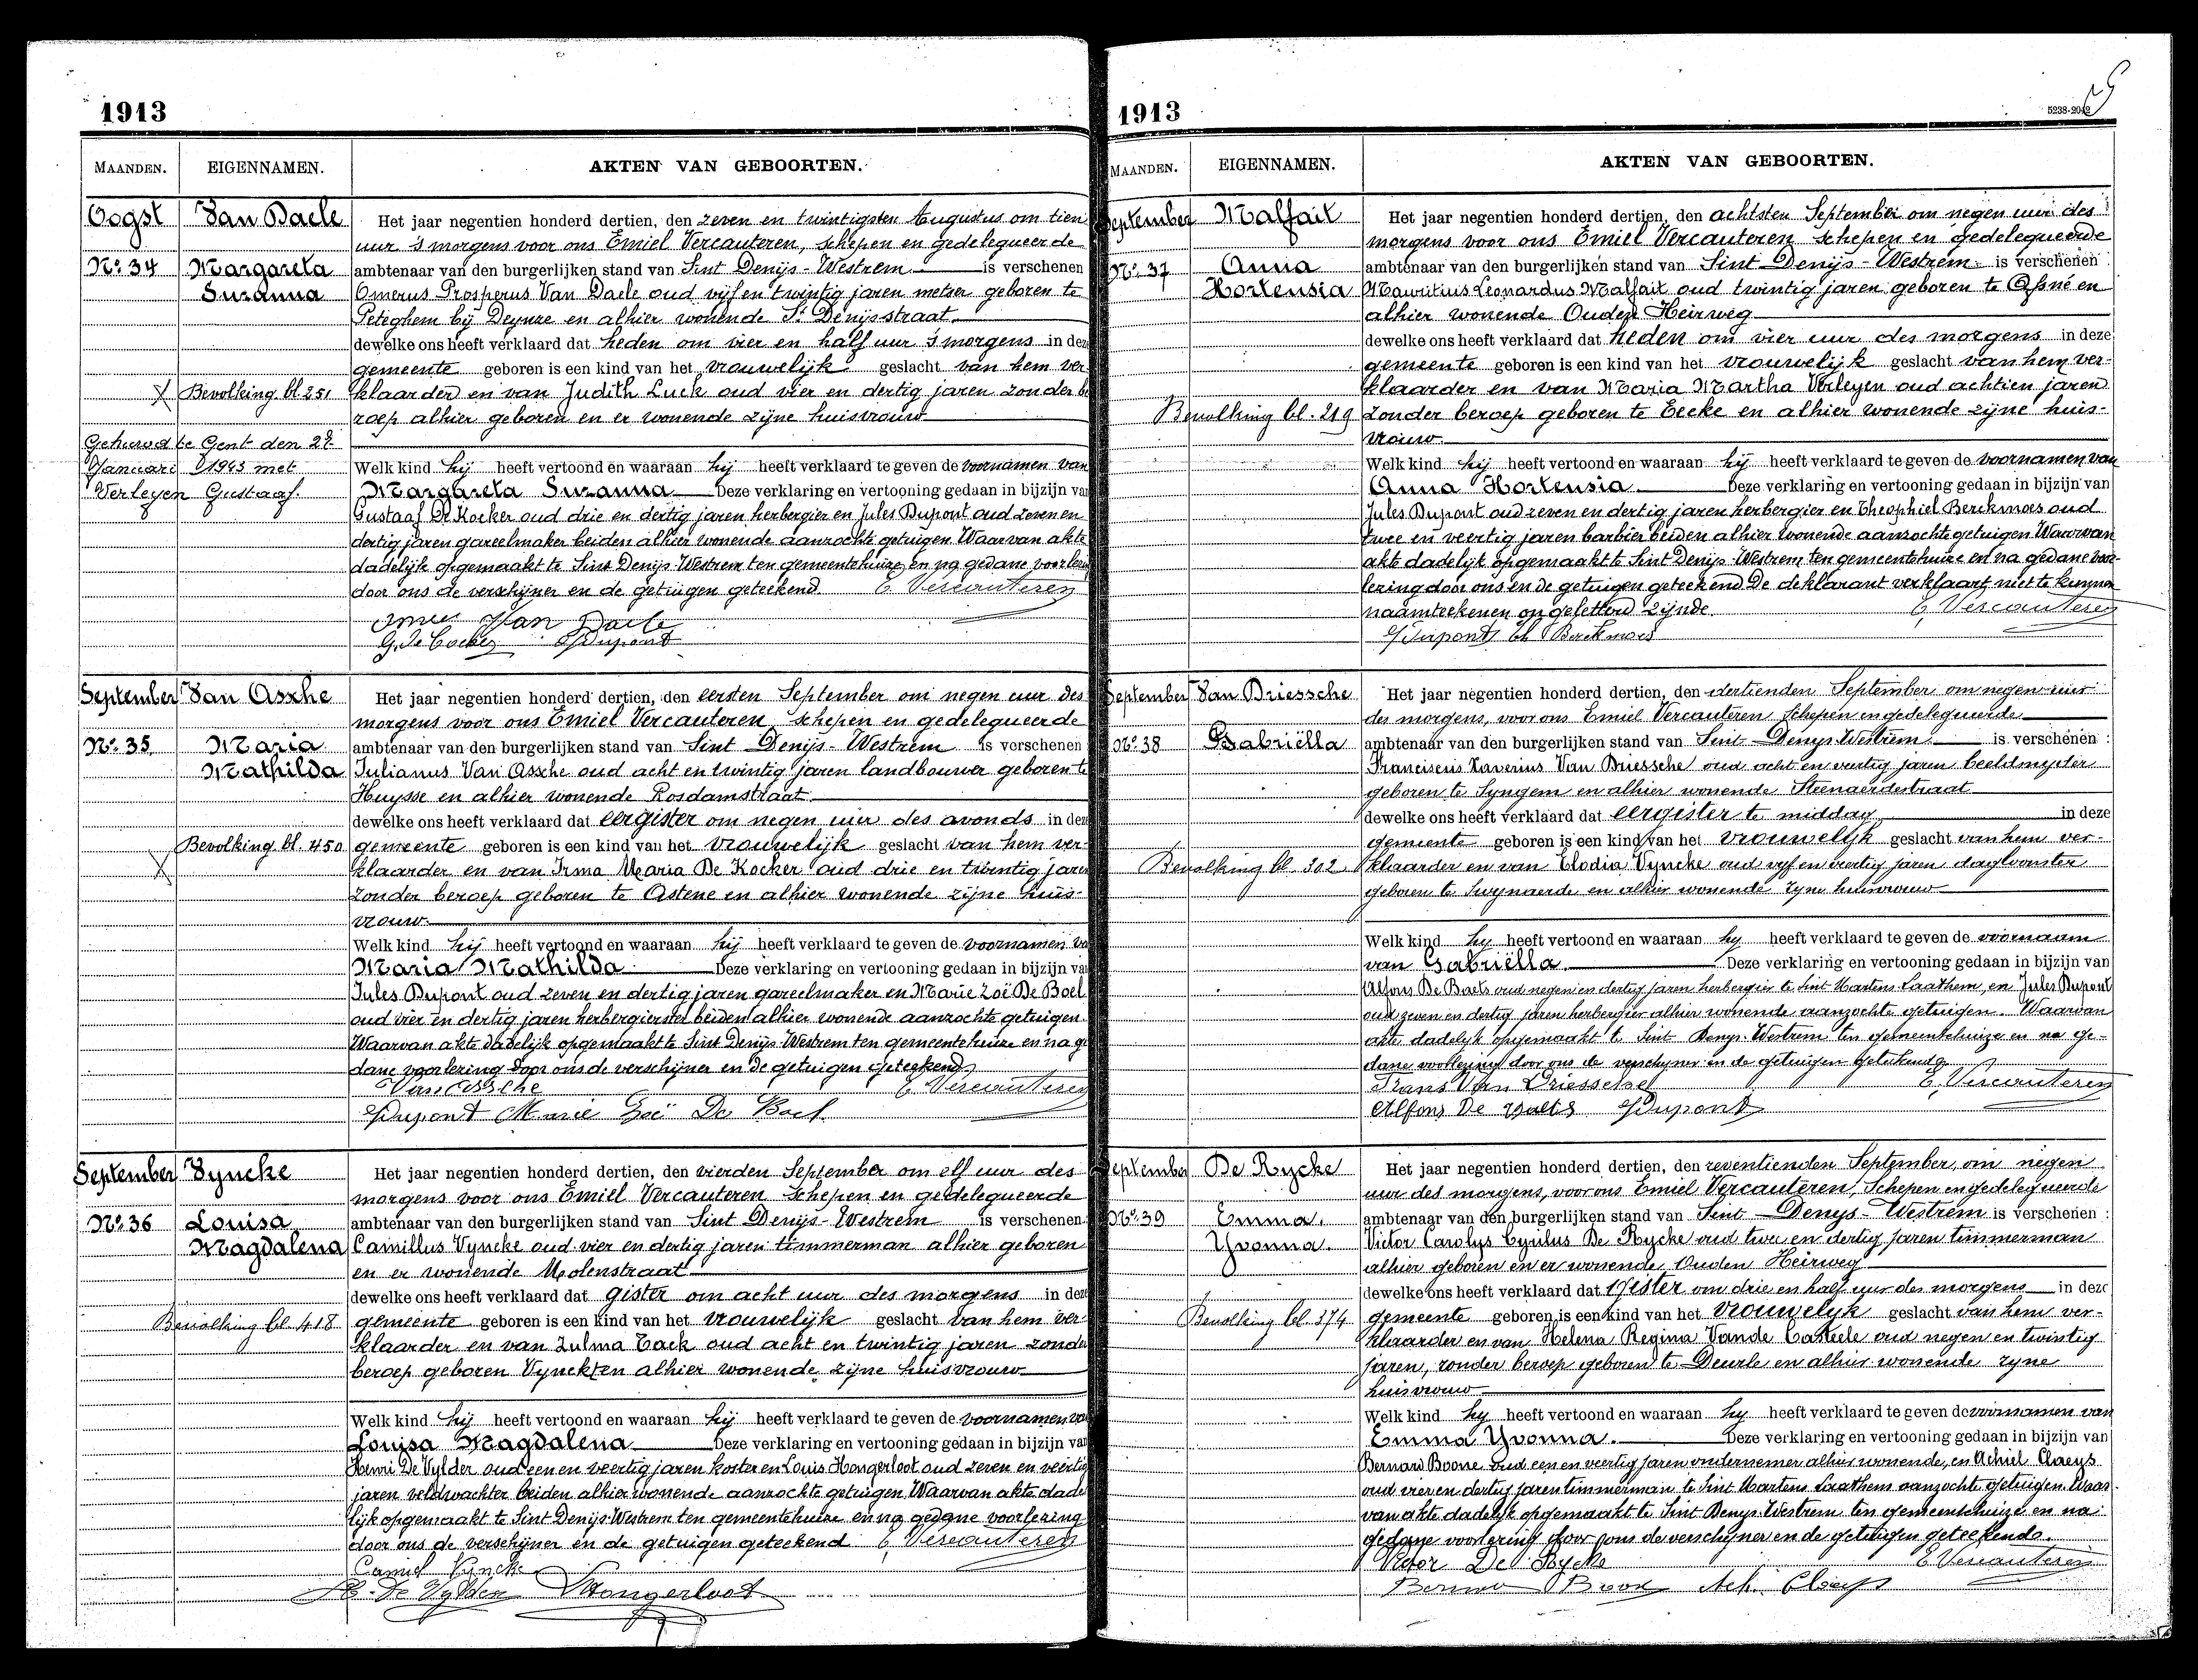 1913
MAANDEN. EIGENNAMEN. AKTEN VAN GEBOORTEN.
Oogst Van Daele Het jaar negentien honderd dertien, den zeven en twintigsten Augustus om tien
uur 's morgens voor ons Emiel Vercauteren, schepen en gedelegueerde
No. 34 Margareta ambtenaar van den burgerlijken stand van Sint Denijs-Westrem is verschenen
Suzanna Omerus Prosperus Van Daele oud vijf en twintig jaren metser geboren te
Peteghem bij Deynze en alhier wonende St Denijsstraat
dewelke ons heeft verklaard dat heden om vier en half uur 's morgens in deze
gemeente geboren is een kind van het vrouwelijk geslacht van hem ver-
Bevolking bl. 251 klaarder en van Judith Luck oud vier en dertig jaren zonder be
roep alhier geboren en er wonende zijne huisvrouw
Gehuwd te Gent den 28
Januari 1943 met Welk kind hij heeft vertoond en waaraan hij heeft verklaard te geven de voornamen van
Verleyen Gustaaf. Margareta Suzanna Deze verklaring en vertooning gedaan in bijzijn van
Gustaaf De Kocker oud drie en dertig jaren herbergier en Jules Dupont oud zeven en
dertig jaren gareelmaker beiden alhier wonende aanzochte getuigen Waarvan akte
dadelijk opgemaakt te Sint Denijs-Westrem ten gemeentehuize en na gedane voorlezing
door ons de verschijner en de getuigen geteekend E. Vercauteren
Omer Van Daele
G. De Cocker J Dupont
September Van Assche Het jaar negentien honderd dertien, den eersten September om negen uur des
morgens voor ons Emiel Vercauteren, schepen en gedelegueerde
No. 35 Maria ambtenaar van den burgerlijken stand van Sint Denijs-Westrem is verschenen
Mathilda Julianus Van Assche oud acht en twintig jaren landbouwer geboren te
Huysse en alhier wonende Rosdamstraat
dewelke ons heeft verklaard dat eergister om negen uur des avonds in deze
Bevolking bl. 450 gemeente geboren is een kind van het vrouwelijk geslacht van hem ver-
klaarder en van Irma Maria De Kocker oud drie en twintig jaren
zonder beroep geboren te Astene en alhier wonende zijne huis-
vrouw
Welk kind hij heeft vertoond en waaraan hij heeft verklaard te geven de voornamen va
Maria Mathilda Deze verklaring en vertooning gedaan in bijzijn van
Jules Dupont oud zeven en dertig jaren gareelmaker en Marie Zoë De Boel
oud vier en dertig jaren herbergierster beiden alhier wonende aanzochte getuigen.
Waarvan akte dadelijk opgemaakt te Sint Denijs-Westrem ten gemeentehuize en na ge
dane voorlezing door ons de verschijner en de getuigen geteekend
Van Assche E. Vercauteren
J Dupont Marie Zoë De Boel
September Vyncke Het jaar negentien honderd dertien, den vierden September om elf uur des
morgens voor ons Emiel Vercauteren schepen en gedelegueerde
No. 36 Louisa ambtenaar van den burgerlijken stand van Sint Denijs-Westrem is verschenen
Magdalena Camillus Vyncke oud vier en dertig jaren timmerman alhier geboren
en er wonende Molenstraat
dewelke ons heeft verklaard dat gister om acht uur des morgens in deze
Bevolking bl. 418 gemeente geboren is een kind van het vrouwelijk geslacht van hem ver-
klaarder en van Zulma Tack oud acht en twintig jaren zonder
beroep geboren Vynckt en alhier wonende zijne huisvrouw
Welk kind hij heeft vertoond en waaraan hij heeft verklaard te geven de voornamen van
Louisa Magdalena Deze verklaring en vertooning gedaan in bijzijn van
Henri De Vylder oud een en veertig jaren koster en Louis Hongerloot oud zeven en veertig
jaren veldwachter beiden alhier wonende aanzochte getuigen. Waarvan akte dade
lijk opgemaakt te Sint Denijs-Westrem ten gemeentehuize en na gedane voorlezing
door ons de verschijner en de getuigen geteekend E. Vercauteren
Camiel Vyncke
H. De Vylder L Hongerloot
1913 5238-2042
MAANDEN. EIGENNAMEN. AKTEN VAN GEBOORTEN.
September Malfait Het jaar negentien honderd dertien, den achtsten September om negen uur des
morgens voor ons Emiel Vercauteren schepen en gedelegueerde
No. 37 Anna ambtenaar van den burgerlijken stand van Sint Denijs-Westrem is verschenen
Hortensia Mauritius Leonardus Malfait oud twintig jaren geboren te Asné en
alhier wonende Ouden Heirweg
dewelke ons heeft verklaard dat heden om vier uur des morgens in deze
gemeente geboren is een kind van het vrouwelijk geslacht van hem ver-
klaarder en van Maria Martha Verleyen oud achtien jaren
Bevolking bl. 219 zonder beroep geboren te Eecke en alhier wonende zijne huis-
vrouw
Welk kind hij heeft vertoond en waaraan hij heeft verklaard te geven de voornamen van
Anna Hortensia Deze verklaring en vertooning gedaan in bijzijn van
Jules Dupont oud zeven en dertig jaren herbergier en Theophiel Berckmoes oud
twee en veertig jaren barbier beiden alhier wonende aanzochte getuigen Waarvan
akte dadelijk opgemaakt te Sint Denijs-Westrem ten gemeentehuize en na gedane voor-
lezing door ons en de getuigen geteekend De deklarant verklaart niet te kunnen
naamteekenen ongeletterd zijnde. E. Vercauteren
J Dupont Th Berckmoes
September Van Driessche Het jaar negentien honderd dertien, den dertienden September om negen uur
des morgens, voor ons Emiel Vercauteren Schepen en gedelegueerde
No. 38 Gabriëlla ambtenaar van den burgerlijken stand van Sint-Denys-Westrem is verschenen :
Franciscus Xaverius Van Driessche oud acht en veertig jaren
geboren te Syngem en alhier wonende Steenaerdestraat
dewelke ons heeft verklaard dat eergister te middag in deze
gemeente geboren is een kind van het vrouwelyk geslacht van hem ver-
Bevolking bl. 302 klaarder en van Elodia Vyncke oud vyf en veertig jaren dagloonster
geboren te Swynaerde en alhier wonende zyne huisvrouw
Welk kind hy heeft vertoond en waaraan hy heeft verklaard te geven de voornaam
van Gabriëlla. Deze verklaring en vertooning gedaan in bijzijn van
Alfons De Baets oud negen en dertig jaren herbergier te Sint Martens Laathem, en Jules Dupont
oud zeven en dertig jaren herbergier alhier wonende aanzochte getuigen. Waarvan
akte dadelyk opgemaakt te Sint Denys-Westrem ten gemeentehuize en na ge-
dane voorlezing door ons de verschyner en de getuigen geteekend
Frans Van Driessche E. Vercauteren
Alfons De Baets J Dupont
September De Rycke Het jaar negentien honderd dertien, den zeventienden September, om negen
uur des morgens, voor ons Emiel Vercauteren, Schepen en gedelegueerde
No. 39 Emma. ambtenaar van den burgerlijken stand van Sint-Denys-Westrem is verschenen :
Yvonna. Victor Carolus Cyrilus De Rycke oud twee en dertig jaren timmerman
alhier geboren en er wonende Ouden Heirweg
dewelke ons heeft verklaard dat gister om drie en half uur des morgens in deze
Bevolking bl. 374 gemeente geboren is een kind van het vrouwelyk geslacht van hem ver-
klaarder en van Helena Regina Vande Casteele oud negen en twintig
jaren, zonder beroep geboren te Deurle en alhier wonende zyne
huisvrouw
Welk kind hy heeft vertoond en waaraan hy heeft verklaard te geven de voornamen van
Emma Yvonna. Deze verklaring en vertooning gedaan in bijzijn van
Bernard Boone oud een en veertig jaren ondernemer alhier wonende, en Achiel Claeys
oud vier en dertig jaren timmerman te Sint Martens Laathem aanzochte getuigen. Waar-
van akte dadelyk opgemaakt te Sint Denys-Westrem ten gemeentehuize en na
gedane voorlezing door ons de verschyner en de getuigen geteekend.
Victor De Rycke E. Vercauteren
Ach. Claeys